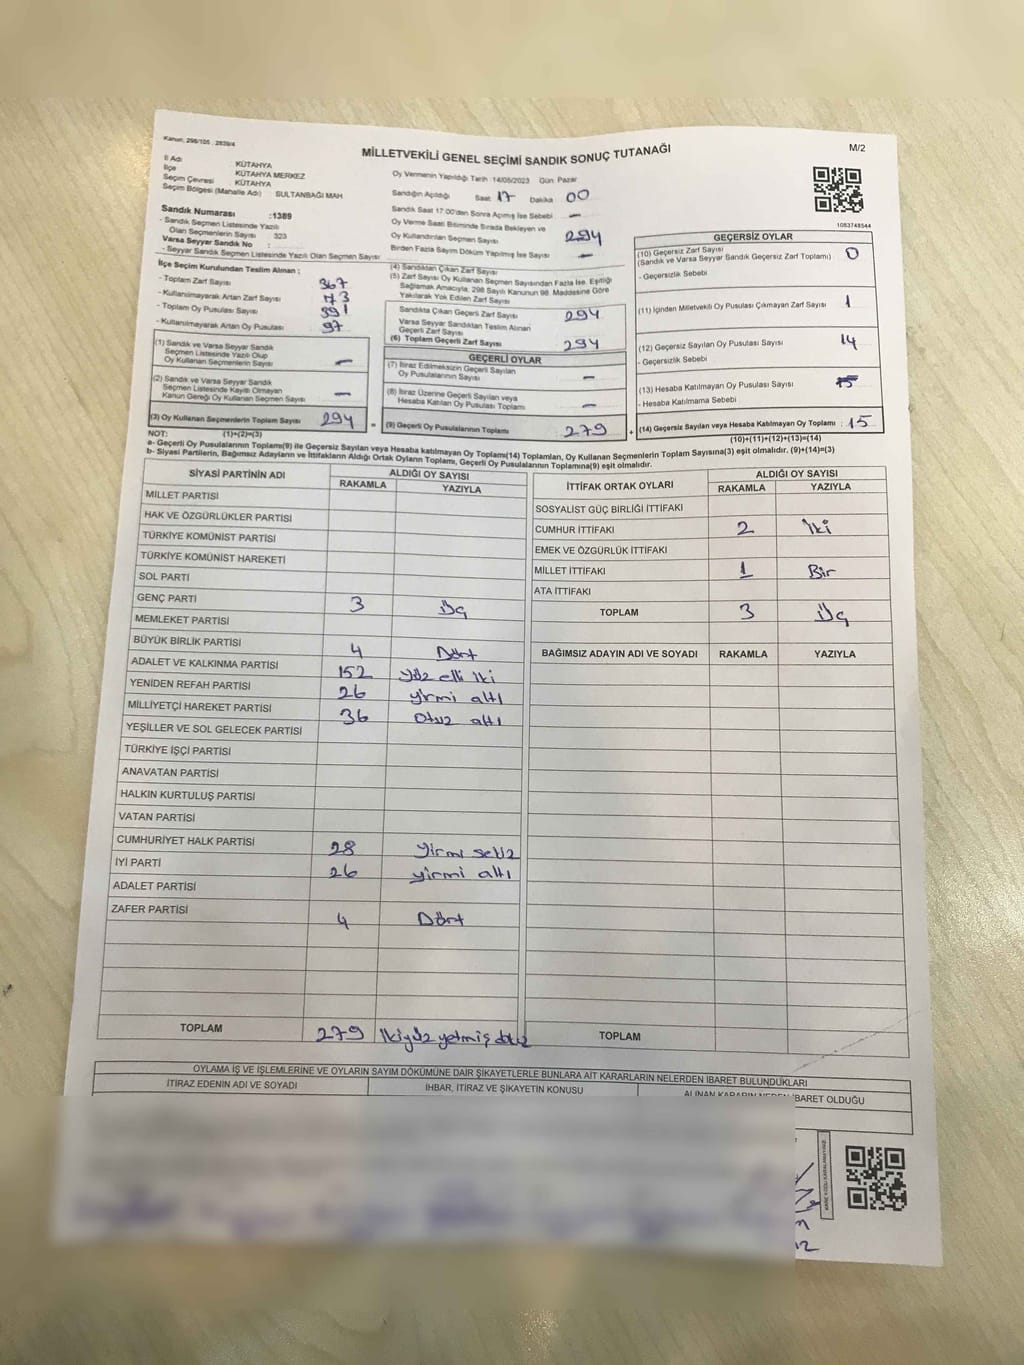 Kanun, 298/105 , 2839/4
MİLLETVEKİLİ GENEL SEÇİMİ SANDIK SONUÇ TUTANAĞI
M/2
İl Adı KÜTAHYA
İlçe KÜTAHYA MERKEZ
Seçim Çevresi KÜTAHYA
Seçim Bölgesi (Mahalle Adı) SULTANBAĞI MAH
Sandık Numarası :1389
- Sandık Seçmen Listesinde Yazılı
Olan Seçmenlerin Sayısı 323
Varsa Seyyar Sandık No :
- Seyyar Sandık Seçmen Listesinde Yazılı Olan Seçmen Sayısı
İlçe Seçim Kurulundan Teslim Alınan ;
- Toplam Zarf Sayısı 367
- Kullanılmayarak Artan Zarf Sayısı 73
- Toplam Oy Pusulası Sayısı 391
- Kullanılmayarak Artan Oy Pusulası 97
(1) Sandık ve Varsa Seyyar Sandık
Seçmen Listesinde Yazılı Olup
Oy Kullanan Seçmenlerin Sayısı —
(2) Sandık ve Varsa Seyyar Sandık
Seçmen Listesinde Kayıtlı Olmayan
Kanun Gereği Oy Kullanan Seçmen Sayısı —
(3) Oy Kullanan Seçmenlerin Toplam Sayısı 294 =
(1)+(2)=(3)
Oy Vermenin Yapıldığı Tarih :14/05/2023 Gün :Pazar
Sandığın Açıldığı Saat: 17 Dakika : 00
Sandık Saat 17:00'den Sonra Açımış İse Sebebi —
Oy Verme Saati Bitiminde Sırada Bekleyen ve
Oy Kullandırılan Seçmen Sayısı 294
Birden Fazla Sayım Döküm Yapılmış İse Sayısı —
(4) Sandıktan Çıkan Zarf Sayısı
(5) Zarf Sayısı Oy Kullanan Seçmen Sayısından Fazla İse, Eşitliği
Sağlamak Amacıyla, 298 Sayılı Kanunun 98. Maddesine Göre
Yakılarak Yok Edilen Zarf Sayısı
Sandıkta Çıkan Geçerli Zarf Sayısı 294
Varsa Seyyar Sandıktan Teslim Alınan
Geçerli Zarf Sayısı
(6) Toplam Geçerli Zarf Sayısı 294
GEÇERLİ OYLAR
(7) İtiraz Edilmeksizin Geçerli Sayılan
Oy Pusulalarının Sayısı —
(8) İtiraz Üzerine Geçerli Sayılan veya
Hesaba Katılan Oy Pusulası Toplamı —
(9) Geçerli Oy Pusulalarının Toplamı 279 +
1083748544
GEÇERSİZ OYLAR
(10) Geçersiz Zarf Sayısı
(Sandık ve Varsa Seyyar Sandık Geçersiz Zarf Toplamı) 0
- Geçersizlik Sebebi
(11) İçinden Milletvekili Oy Pusulası Çıkmayan Zarf Sayısı 1
(12) Geçersiz Sayılan Oy Pusulası Sayısı 14
- Geçersizlik Sebebi
(13) Hesaba Katılmayan Oy Pusulası Sayısı
- Hesaba Katılmama Sebebi
(14) Geçersiz Sayılan veya Hesaba Katılmayan Oy Pusulası Toplamı : 15
(10)+(11)+(12)+(13)=(14)
NOT:
a- Geçerli Oy Pusulalarının Toplamı(9) ile Geçersiz Sayılan veya Hesaba katılmayan Oy Pusulası Toplam(14) Toplamları, Oy Kullanan Seçmenlerin Toplam Sayısına(3) eşit olmalıdır. (9)+(14)=(3)
b- Siyasi Partilerin, Bağımsız Adayların ve İttifakların Aldığı Ortak Oyların Toplamı, Geçerli Oy Pusulalarının Toplamına(9) eşit olmalıdır.
SİYASİ PARTİNİN ADI ALDIĞI OY SAYISI
RAKAMLA YAZIYLA
MİLLET PARTİSİ
HAK VE ÖZGÜRLÜKLER PARTİSİ
TÜRKİYE KOMÜNİST PARTİSİ
TÜRKİYE KOMÜNİST HAREKETİ
SOL PARTİ
GENÇ PARTİ 3 Üç
MEMLEKET PARTİSİ
BÜYÜK BİRLİK PARTİSİ 4 Dört
ADALET VE KALKINMA PARTİSİ 152 yüz elli iki
YENİDEN REFAH PARTİSİ 26 yirmi altı
MİLLİYETÇİ HAREKET PARTİSİ 36 Otuz altı
YEŞİLLER VE SOL GELECEK PARTİSİ
TÜRKİYE İŞÇİ PARTİSİ
ANAVATAN PARTİSİ
HALKIN KURTULUŞ PARTİSİ
VATAN PARTİSİ
CUMHURİYET HALK PARTİSİ 28 yirmi sekiz
İYİ PARTİ 26 yirmi altı
ADALET PARTİSİ
ZAFER PARTİSİ 4 Dört
TOPLAM 279 İkiyüz yetmiş dokuz
İTTİFAK ORTAK OYLARI ALDIĞI OY SAYISI
RAKAMLA YAZIYLA
SOSYALİST GÜÇ BİRLİĞİ İTTİFAKI
CUMHUR İTTİFAKI 2 İki
EMEK VE ÖZGÜRLÜK İTTİFAKI
MİLLET İTTİFAKI 1 Bir
ATA İTTİFAKI
TOPLAM 3 Üç
BAĞIMSIZ ADAYIN ADI VE SOYADI RAKAMLA YAZIYLA
TOPLAM
OYLAMA İŞ VE İŞLEMLERİNE VE OYLARIN SAYIM DÖKÜMÜNE DAİR ŞİKAYETLERLE BUNLARA AİT KARARLARIN NELERDEN İBARET BULUNDUKLARI
İTİRAZ EDENİN ADI VE SOYADI İHBAR, İTİRAZ VE ŞİKAYETİN KONUSU ALINAN KARARIN NEDEN İBARET OLDUĞU